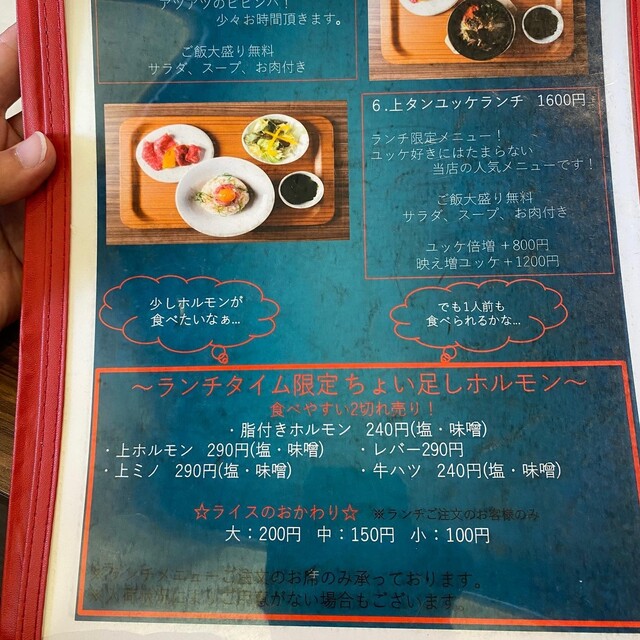 アツアツのビビンバ！
少々お時間頂きます。
ご飯大盛り無料
サラダ、スープ、お肉付き
6.上タンユッケランチ 1600円
ランチ限定メニュー！
ユッケ好きにはたまらない
当店の人気メニューです！
ご飯大盛り無料
サラダ、スープ、お肉付き
ユッケ倍増＋800円
映え増ユッケ＋1200円
少しホルモンが
食べたいなぁ...
でも1人前も
食べられるかな...
～ランチタイム限定ちょい足しホルモン～
食べやすい2切れ売り！
・脂付きホルモン 240円(塩・味噌)
・上ホルモン 290円(塩・味噌) ・レバー290円
・上ミノ 290円(塩・味噌) ・牛ハツ 240円(塩・味噌)
☆ライスのおかわり☆ ※ランチご注文のお客様のみ
大：200円 中：150円 小：100円
※ランチメニューご注文のお席のみ承っております。
ご用意がない場合もございます